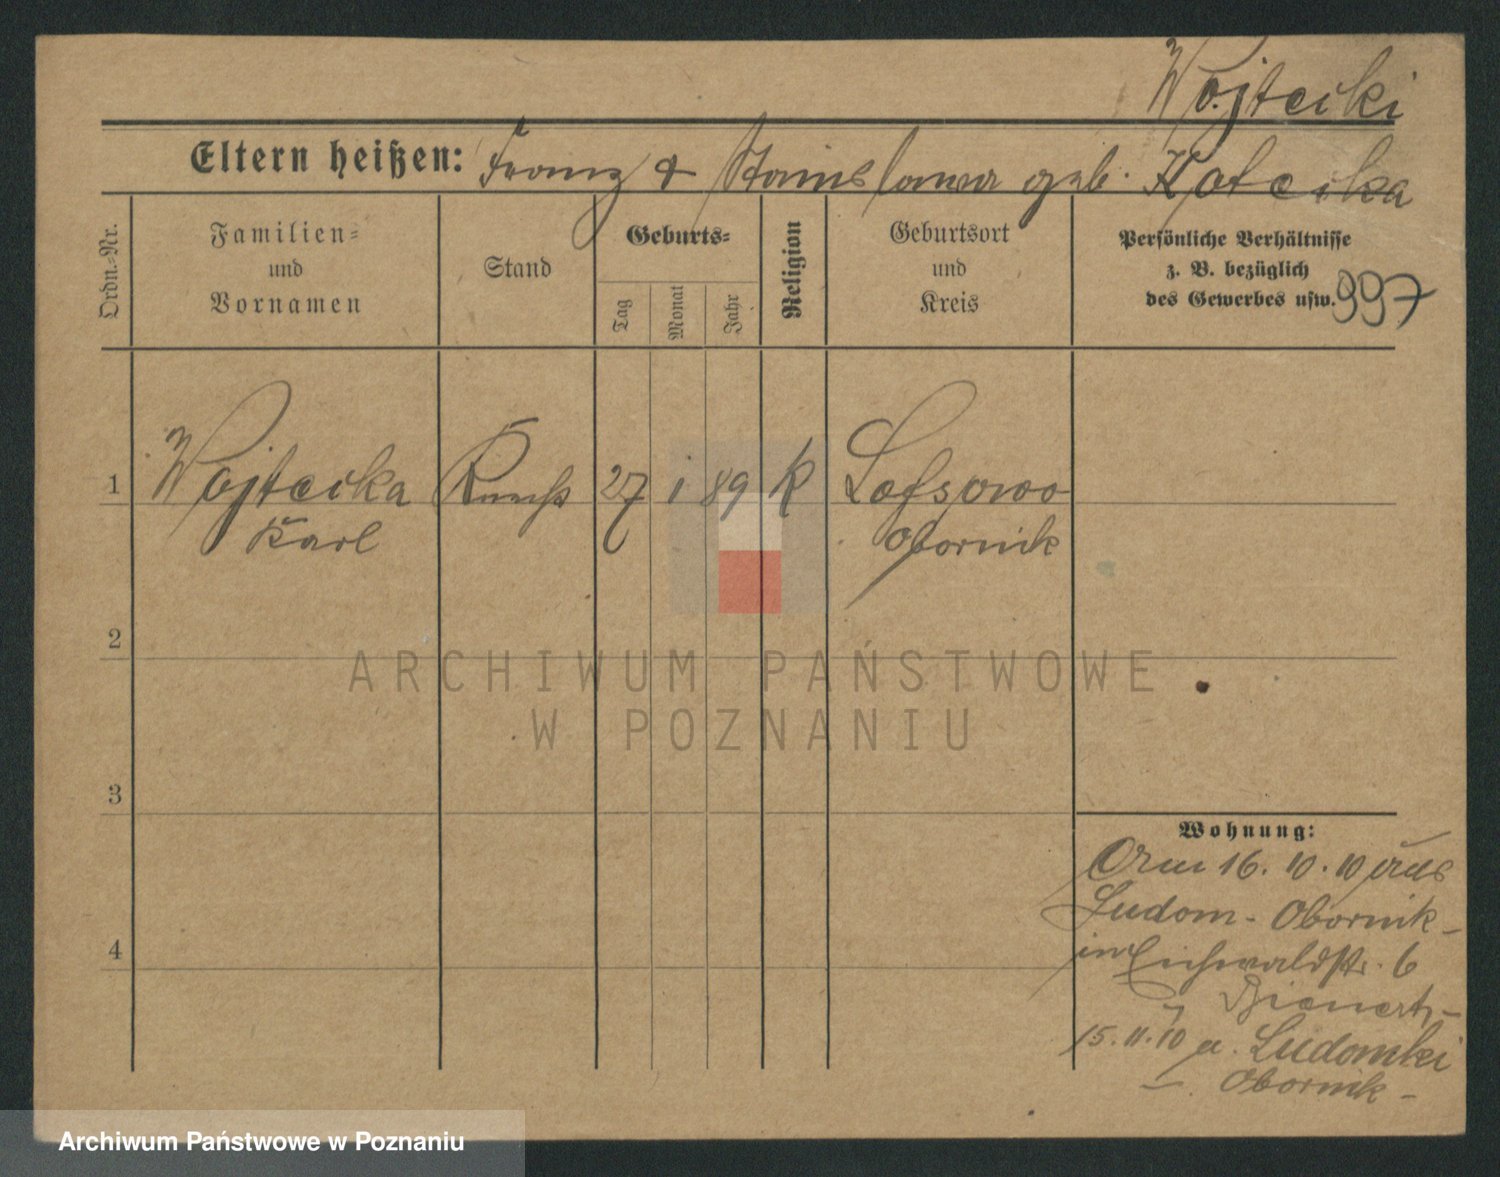 Wojtecki
Eltern heißen: Franz & Stanislawa geb.
Ordn.-Nr.
Familien-
und
Vornamen
Stand
Geburts-
Tag
Monat
Jahr
Religion
Geburtsort
und
Kreis
Persönliche Verhältnisse
z. B. bezüglich
des Gewerbes usw.
997
1 27 i 89 K
Karl Obornik
2
ARCHIWUM PAŃSTWOWE
W POZNANIU
3
Wohnung:
16. 10. 10 aus
Ludom - Obornik -
4
in Eichwaldstr. 6
15. 11. 10 n. Ludomki
Obornik -
Archiwum Państwowe w Poznaniu